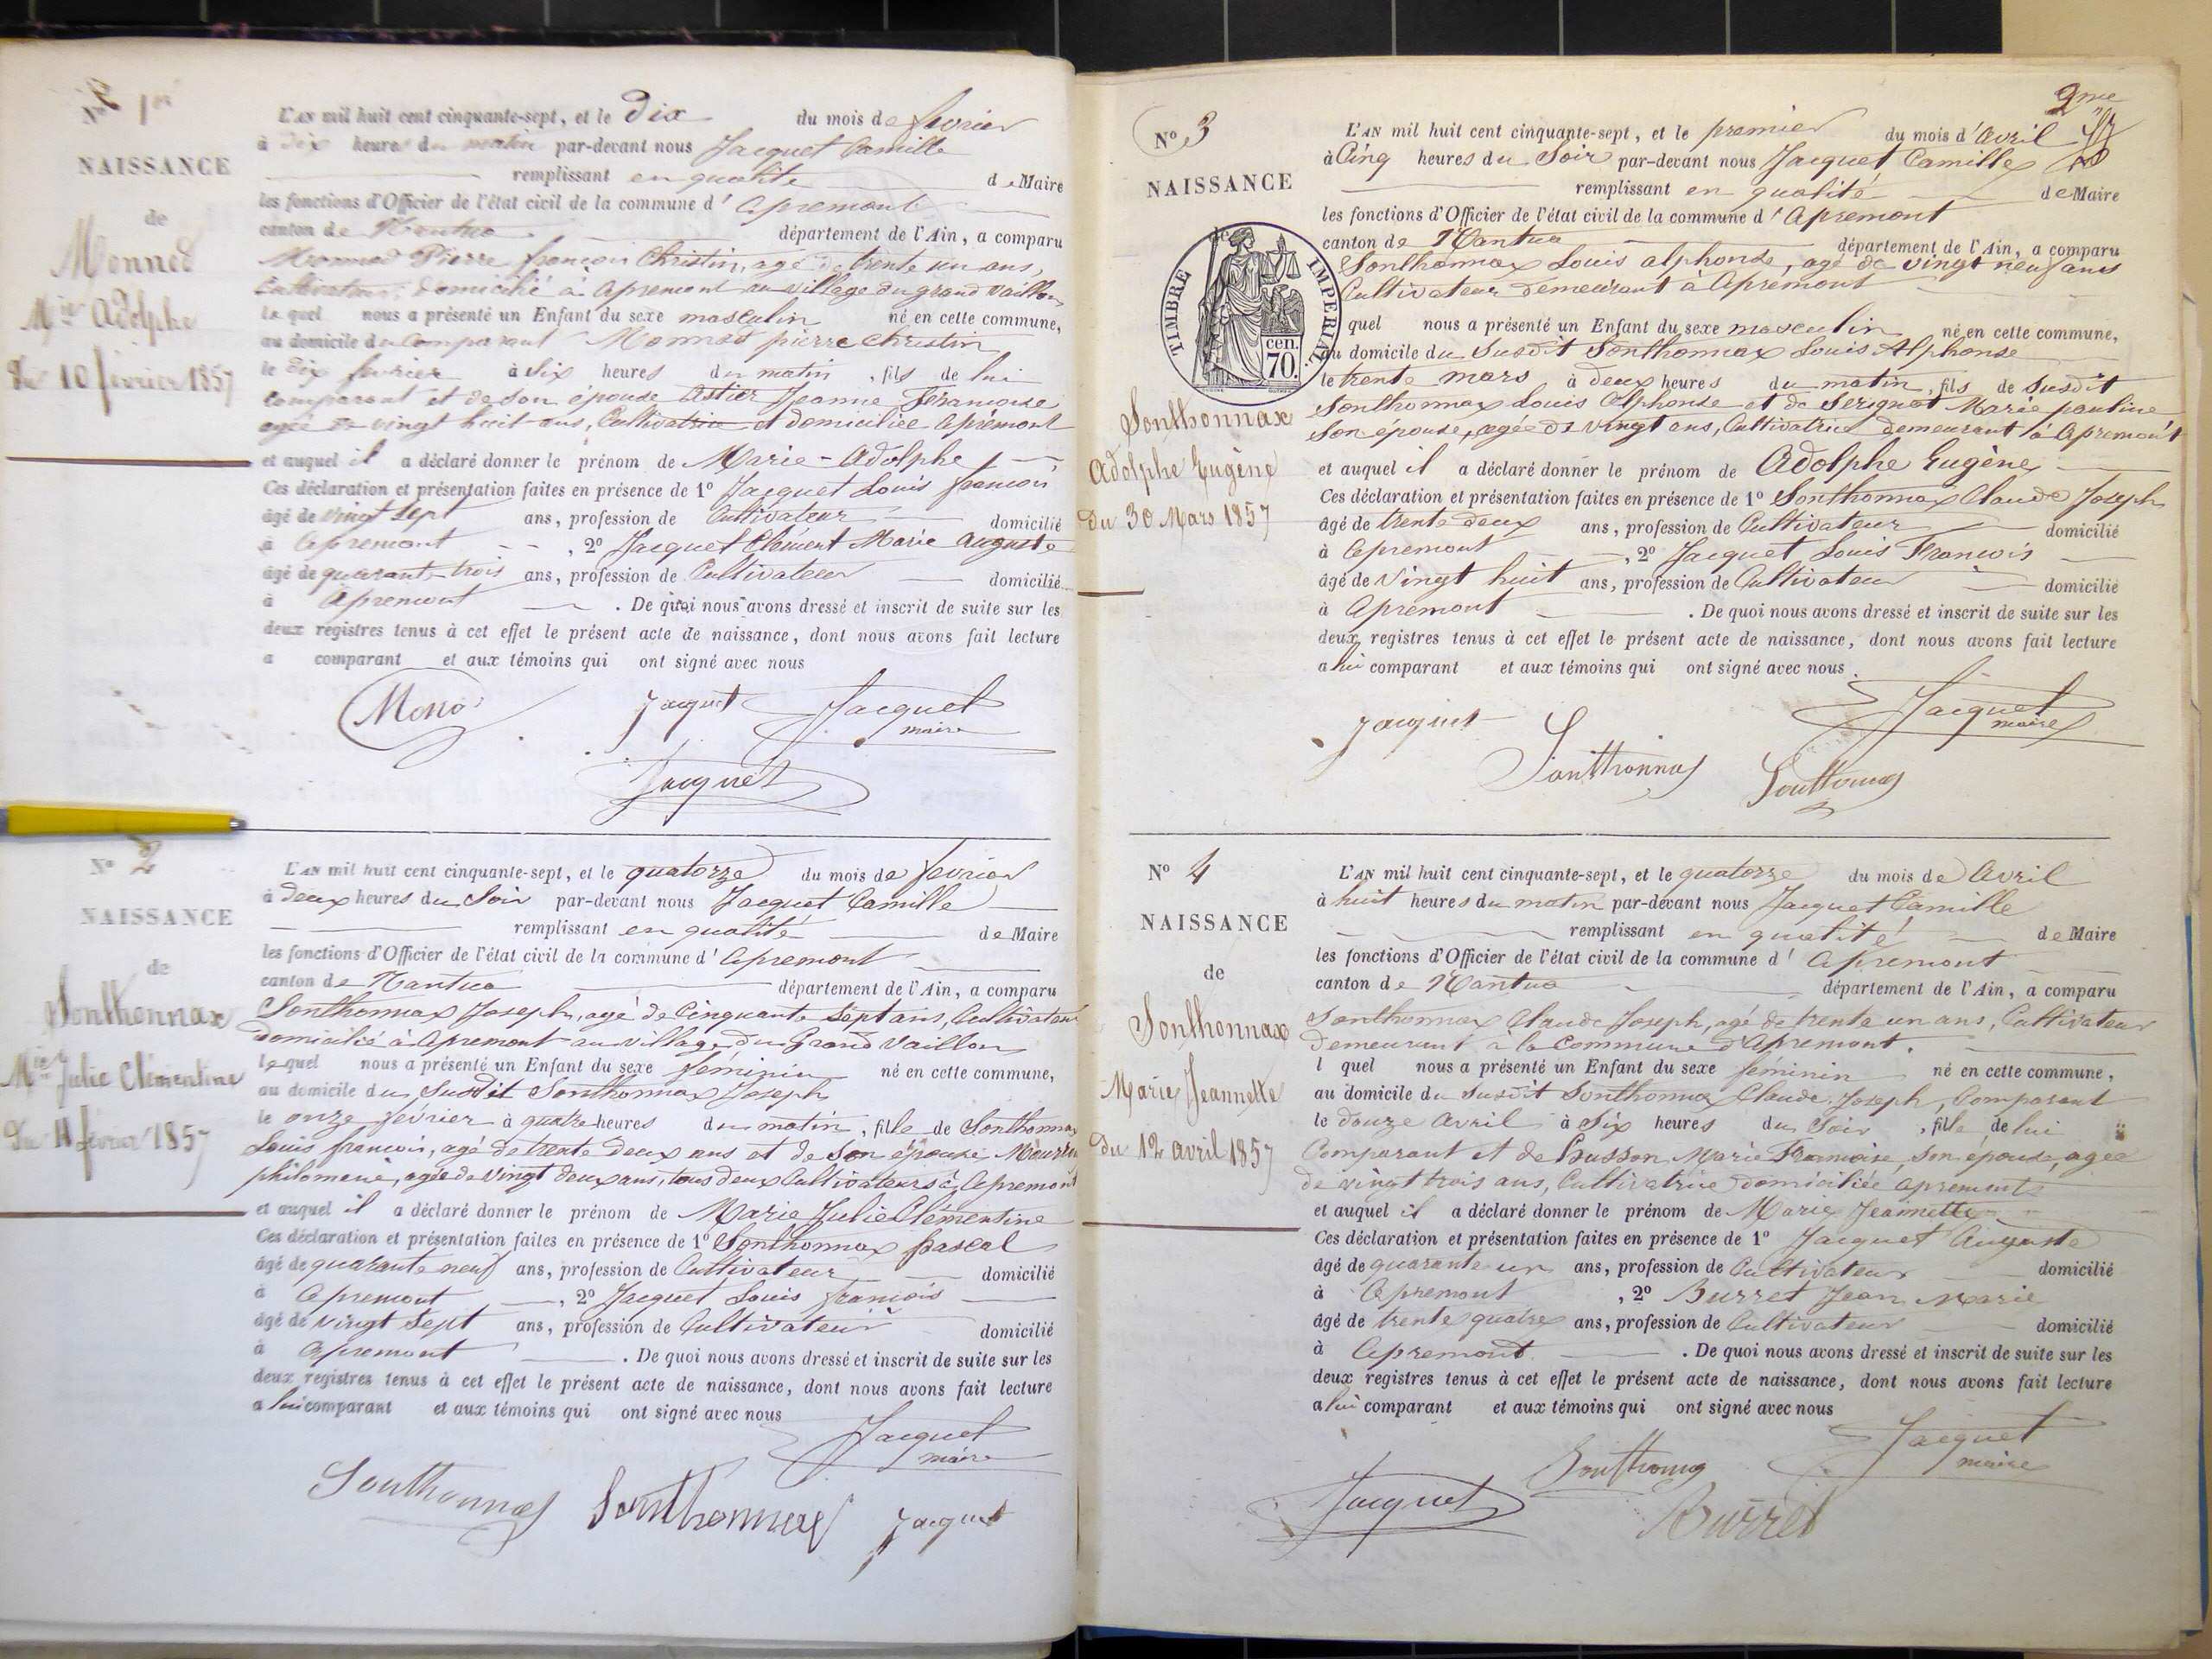 No 1er
NAISSANCE
de
Monnod
Mie Adolphe
Du 10 février 1857
L'AN mil huit cent cinquante-sept, et le Dix du mois de fevrier
à Dix heures du matin par-devant nous Jacquet Camille
remplissant en qualité de Maire
les fonctions d'Officier de l'état civil de la commune d' Apremont
canton de Nantua département de l'Ain, a comparu
Monnod Pierre françois Christin, agé de trente un ans,
Cultivateur, domicilié à Apremont au village du grand Vaillon
le quel nous a présenté un Enfant du sexe masculin né en cette commune,
au domicile du Comparant Monnod pierre Christin
le Dix fevrier à Six heures du matin, fils de lui
comparant et de son épouse Astier Jeanne Francoise
agée de vingt huit ans, Cultivatrice et domiciliée Apremont
et auquel il a déclaré donner le prénom de Marie-Adolphe
Ces déclaration et présentation faites en présence de 1° Jacquet Louis francois
âgé de Vingt Sept ans, profession de Cultivateur domicilié
à Apremont, 2° Jacquet Clément Marie Auguste
âgé de quarant-trois ans, profession de Cultivateur domicilié
à Apremont. De quoi nous avons dressé et inscrit de suite sur les
deux registres tenus à cet effet le présent acte de naissance, dont nous avons fait lecture
a comparant et aux témoins qui ont signé avec nous
Mono Jaquet Jacquet
maire
Jacquet
No 2
NAISSANCE
de
Sonthonnax
Mie Julie Clémentine
Du 11 février 1857
L'AN mil huit cent cinquante-sept, et le quatorze du mois de fevrier
à Deux heures du Soir par-devant nous Jacquet Camille
remplissant en qualité de Maire
les fonctions d'Officier de l'état civil de la commune d' Apremont
canton de Nantua département de l'Ain, a comparu
Sonthonnax Joseph, agé de Cinquante Sept ans, Cultivateur
domicilié à Apremont au village du Grand Vaillon
le quel nous a présenté un Enfant du sexe féminin né en cette commune,
au domicile du Susdit Sonthonnax Joseph
le onze février à quatre heures du matin, fille de Sonthonnax
Louis francois, agé de trente Deux ans et de Son épouse
philomene, agée de Vingt Deux ans, tous deux Cultivateurs à Apremont
et auquel il a déclaré donner le prénom de Marie Julie Clémentine
Ces déclaration et présentation faites en présence de 1° Sonthonnax pascal
âgé de quarante neuf ans, profession de Cultivateur domicilié
à Apremont, 2° Jacquet Louis francois
âgé de Vingt Sept ans, profession de Cultivateur domicilié
à Apremont. De quoi nous avons dressé et inscrit de suite sur les
deux registres tenus à cet effet le présent acte de naissance, dont nous avons fait lecture
a lui comparant et aux témoins qui ont signé avec nous
Jacquet
maire
Sonthonnax Sonthonnax Jaquet
2me
No 3
NAISSANCE
de
TIMBRE IMPERIAL
cen. 70.
Sonthonnax
Adolphe Eugène
Du 30 Mars 1857
L'AN mil huit cent cinquante-sept, et le premier du mois d'Avril
à Cinq heures du Soir par-devant nous Jacquet Camille
remplissant en qualité de Maire
les fonctions d'Officier de l'état civil de la commune d' Apremont
canton de Nantua département de l'Ain, a comparu
Sonthonnax Louis alphonse, agé de vingt neuf ans
Cultivateur demeurant à Apremont
quel nous a présenté un Enfant du sexe masculin né en cette commune,
au domicile du Susdit Sonthonnax Louis Alphonse
le trente mars à deux heures du matin, fils de Susdit
Sonthonnax Louis Alphonse et de Serignat Marie pauline
Son épouse, agée de Vingt ans, Cultivatrice demeurant à Apremont
et auquel il a déclaré donner le prénom de Adolphe Eugène
Ces déclaration et présentation faites en présence de 1° Sonthonnax Claude Joseph
âgé de trente deux ans, profession de Cultivateur domicilié
à Apremont, 2° Jacquet Louis Francois
âgé de Vingt huit ans, profession de Cultivateur domicilié
à Apremont. De quoi nous avons dressé et inscrit de suite sur les
deux registres tenus à cet effet le présent acte de naissance, dont nous avons fait lecture
a lui comparant et aux témoins qui ont signé avec nous.
Jacquet
maire
Jaquet Sonthonnax Sonthonax
No 4
NAISSANCE
de
Sonthonnax
Marie Jeannette
du 12 avril 1857
L'AN mil huit cent cinquante-sept, et le quatorze du mois de Avril
à huit heures du matin par-devant nous Jacquet Camille
remplissant en qualité de Maire
les fonctions d'Officier de l'état civil de la commune d' Apremont
canton de Nantua département de l'Ain, a comparu
Sonthonnax Claude Joseph, agé de trente un ans, Cultivateur
Demeurant à la Commune d'Apremont.
l quel nous a présenté un Enfant du sexe féminin né en cette commune,
au domicile du Susdit Sonthonnax Claude Joseph, Comparant
le douze Avril à Six heures du Soir, fille de lui
Comparant et de Husson Marie Francoise, Son épouse, agée
de vingt trois ans, Cultivatrice domiciliée apremont
et auquel il a déclaré donner le prénom de Marie Jeannette
Ces déclaration et présentation faites en présence de 1° Jacquet Auguste
âgé de quarante un ans, profession de Cultivateur domicilié
à Apremont, 2° Burret Jean Marie
âgé de trente quatre ans, profession de Cultivateur domicilié
à Apremont. De quoi nous avons dressé et inscrit de suite sur les
deux registres tenus à cet effet le présent acte de naissance, dont nous avons fait lecture
a lui comparant et aux témoins qui ont signé avec nous
Jacquet
maire
Jacquet Sonthonax
Burret